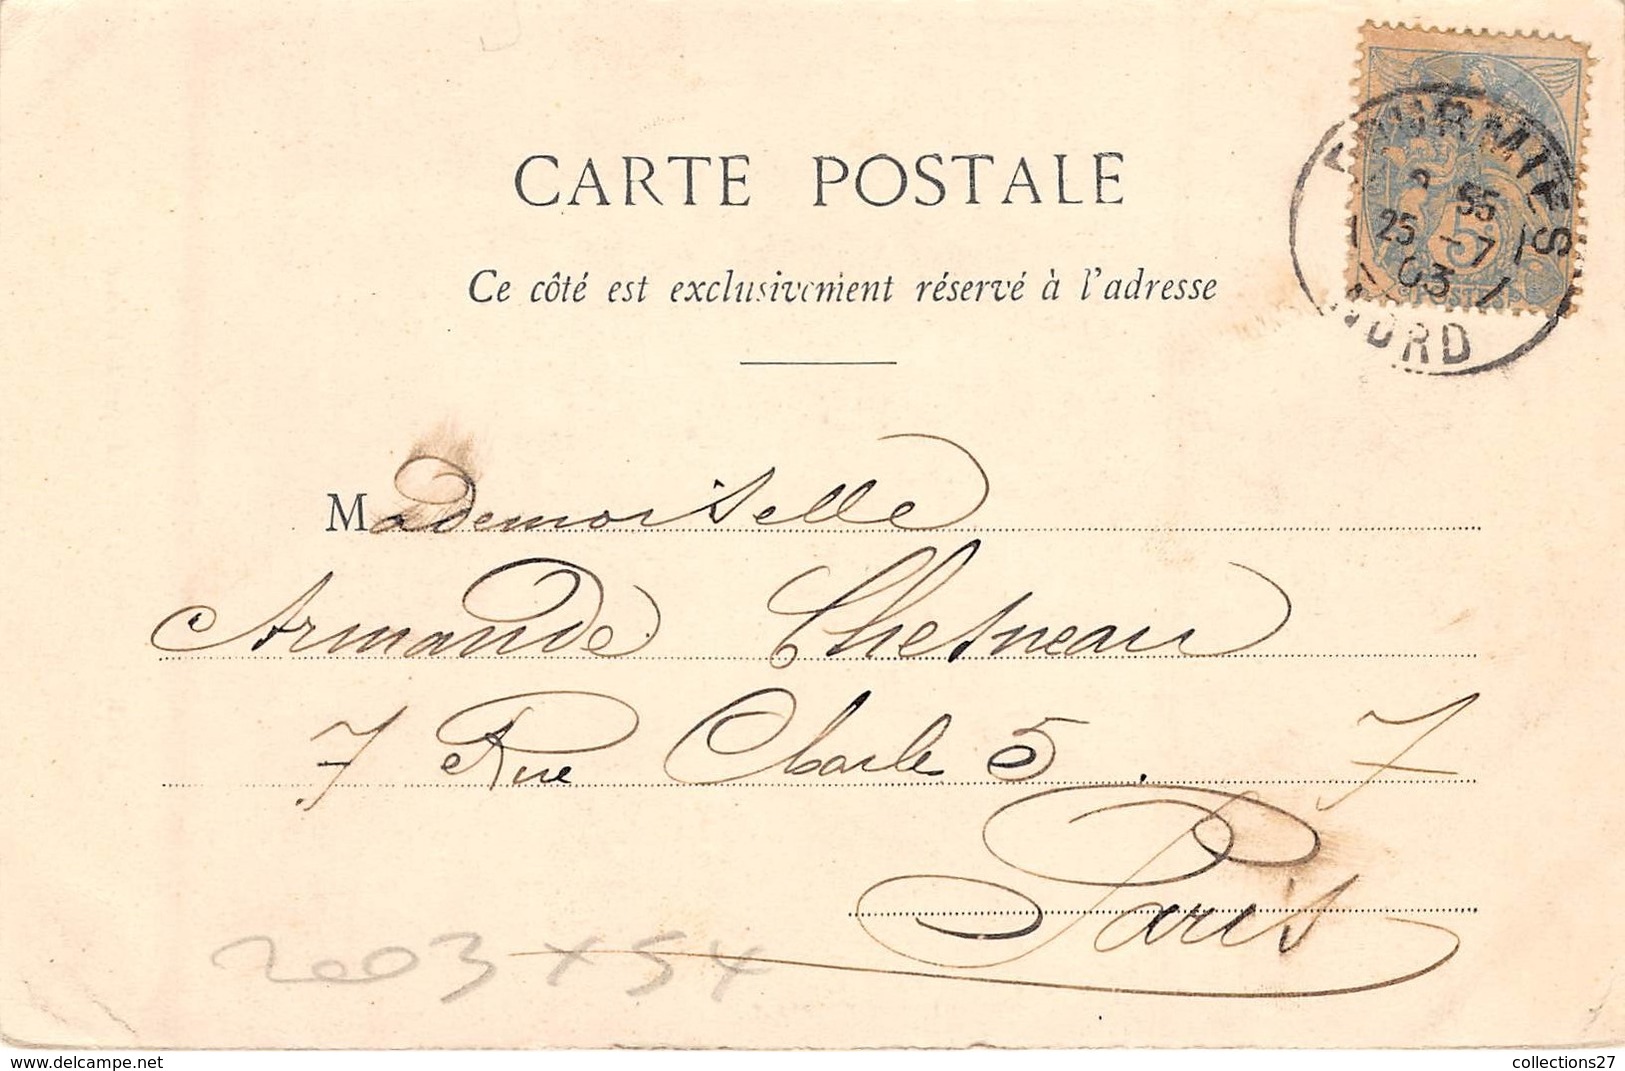 CARTE POSTALE
Ce côté est exclusivement réservé à l'adresse
FOURMIES
55
25 -7
03
NORD
5c
POSTES
Mademoiselle
Armande Chesneau
7 Rue Charle 5. 7
Paris
2003 x 54
https://www.delcampe.net
collections27